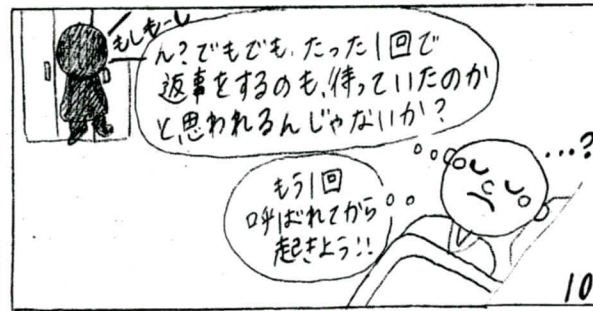 もしもーし
ん?でもでも、たった1回で
返事をするのも、待っていたのか
と思われるんじゃないか?
…?
もう1回
呼ばれてから
起きよう!!
10